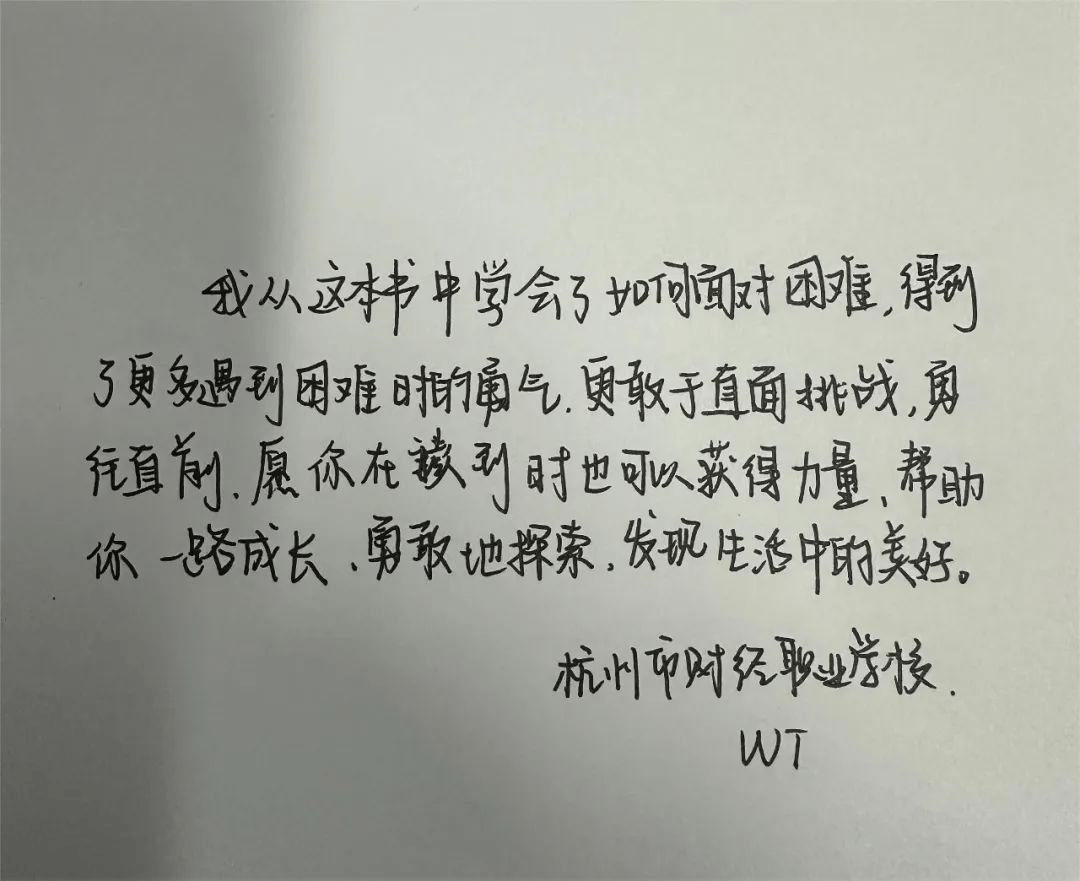 我从这本书中学会了如何面对困难,得到
了更多遇到困难时的勇气.更敢于直面挑战,勇
往直前.愿你在读到时也可以获得力量,帮助
你一路成长,勇敢地探索,发现生活中的美好。
杭州市财经职业学校.
WT